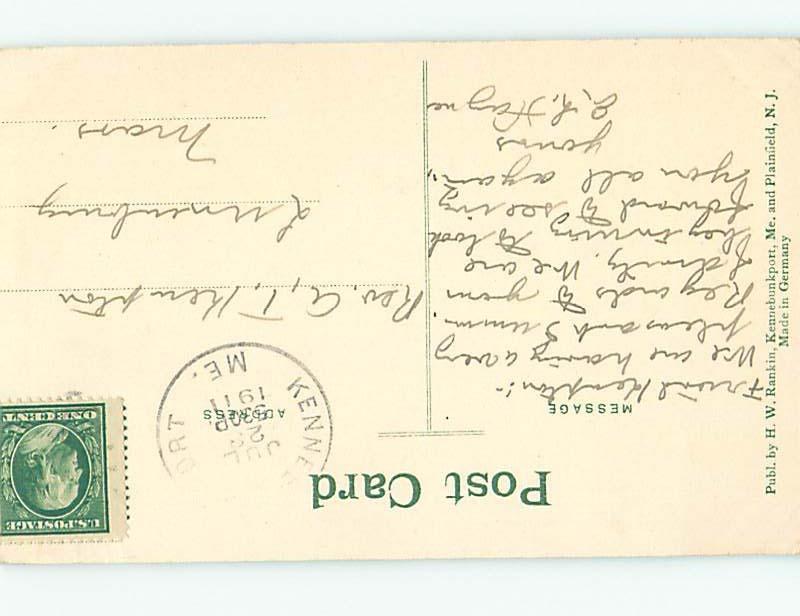 Post Card
MESSAGE
ADDRESS
Friend Kempton:-
We are having a very
pleasant Summ.
Regards to your
family. We are
beginning to look
forward to seeing
you all again.
yours
E. L. Hague
Rev. A. T. Kempton
Lunenburg
Mass.
KENNE PORT
ME.
JUL
2
1911
U.S. POSTAGE
ONE CENT
Publ. by H. W. Rankin, Kennebunkport, Me. and Plainfield, N. J.
Made in Germany